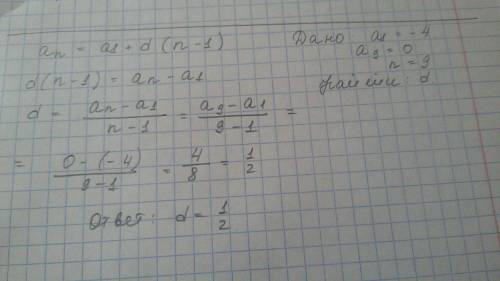 an = a1 + d (n - 1)
d(n-1) = an - a1
d = \frac{an - a1}{n - 1} = \frac{a9 - a1}{9 - 1} =
= \frac{0 - (-4)}{9 - 1} = \frac{4}{8} = \frac{1}{2}
Ответ: d = \frac{1}{2}
Дано: a1 = -4
a9 = 0
n = 9
Найти: d